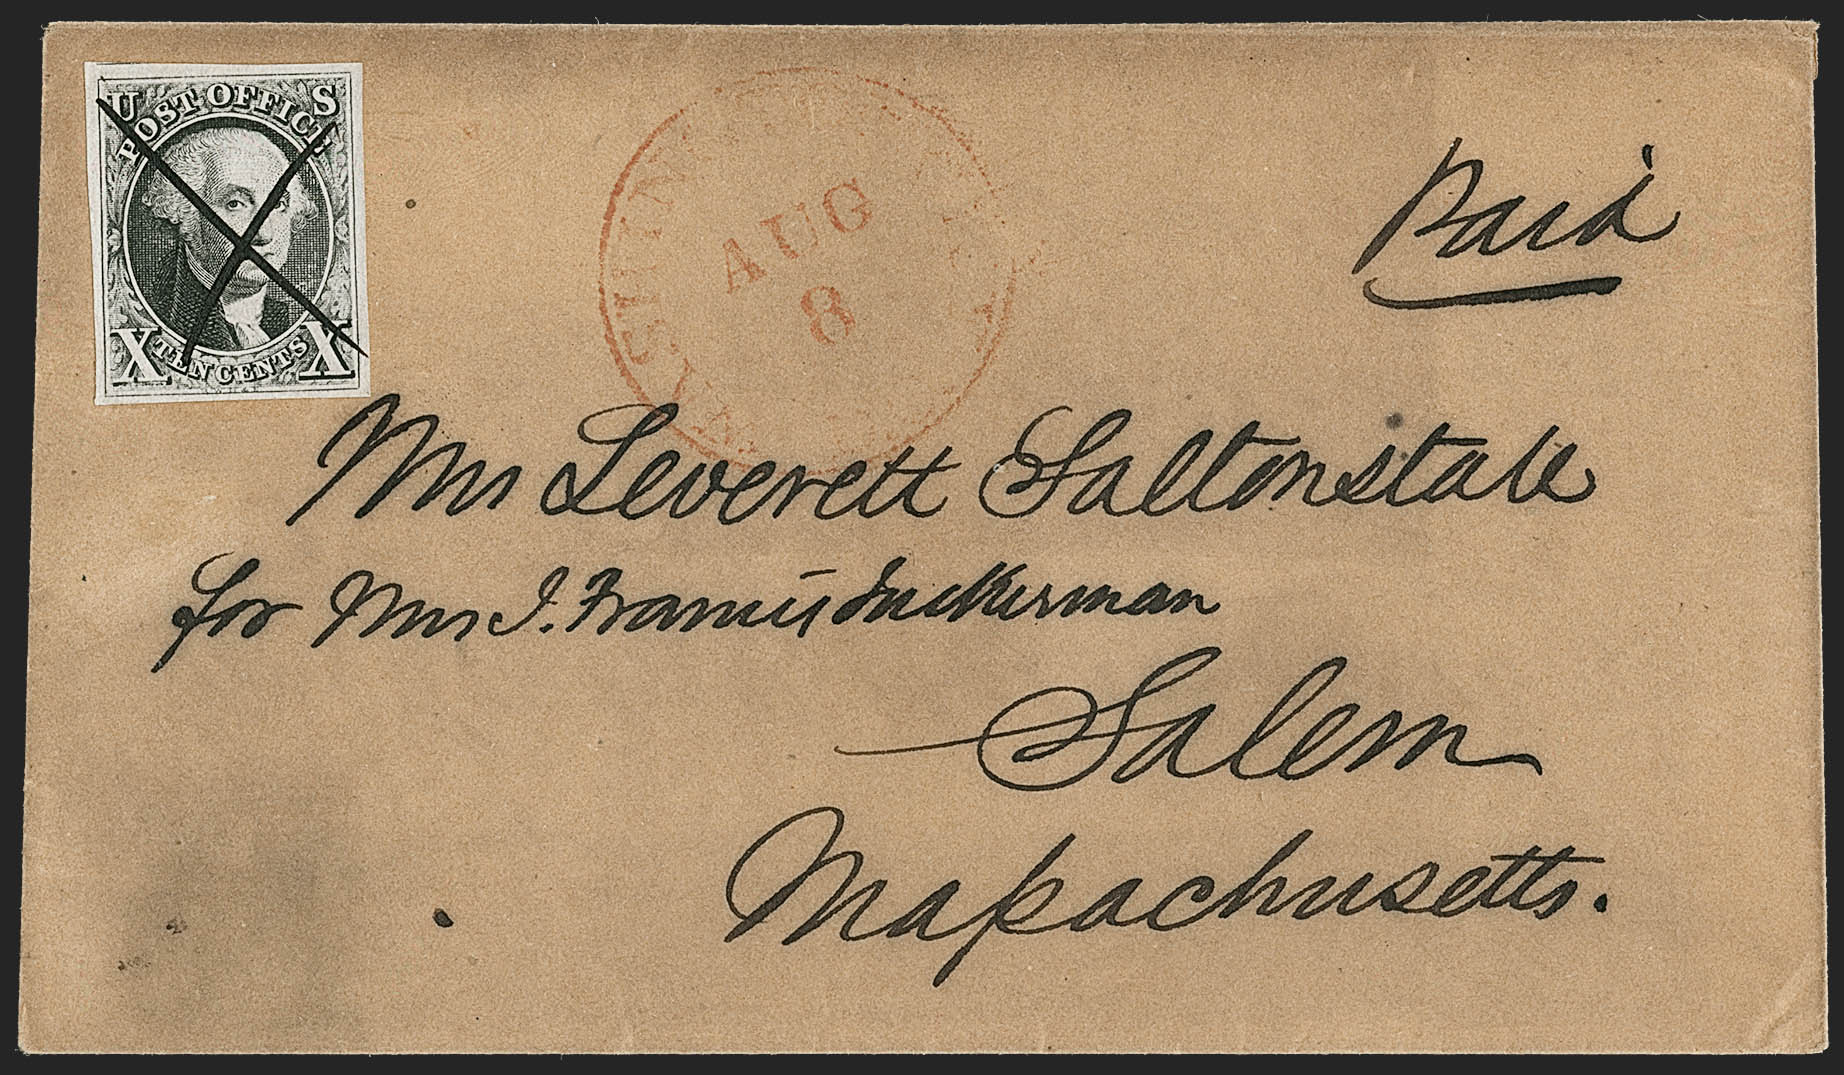 U S
POST OFFICE
X TEN CENTS X
AUG
8
Paid
Mrs Leverett Saltonstall
for Mrs J. Francis Tuckerman
Salem
Massachusetts.